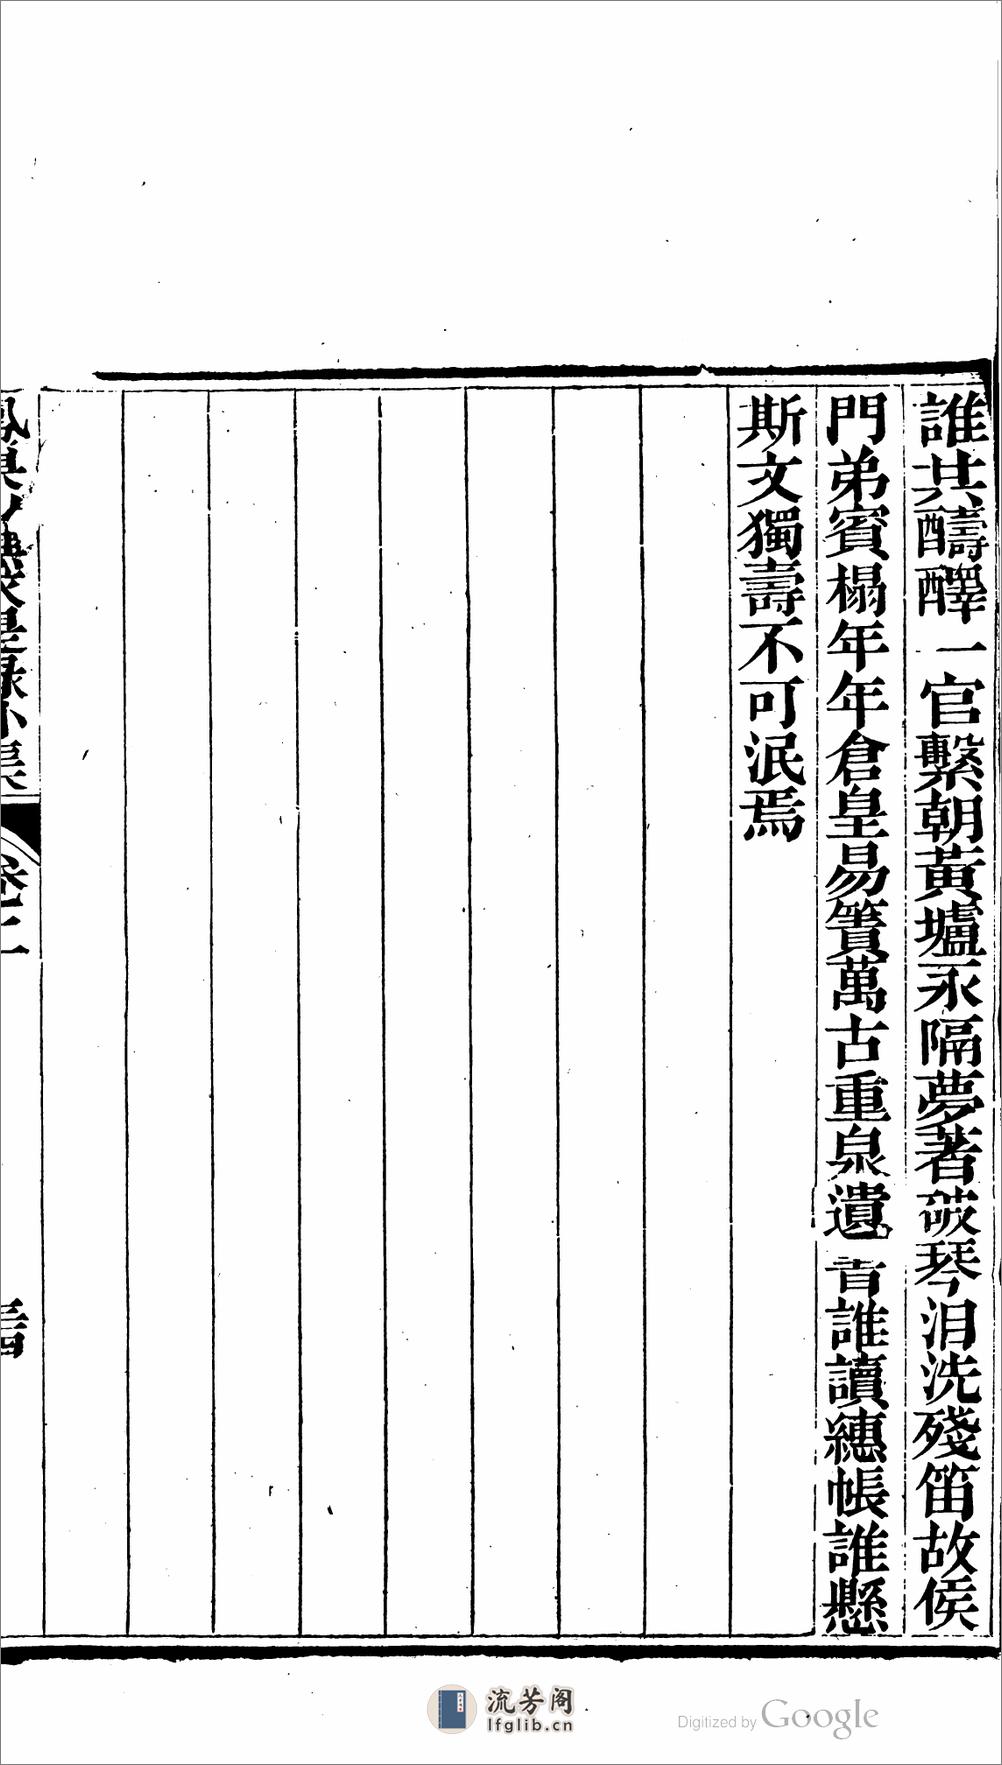 誰共醻醳一官繫朝黃壚永隔夢著破琴泪洗殘笛故侯
門弟賓榻年年倉皇易簀萬古重泉遺書誰讀繐帳誰懸
斯文獨壽不可泯焉
卷二
流芳阁
lfglib.cn
Digitized by Google